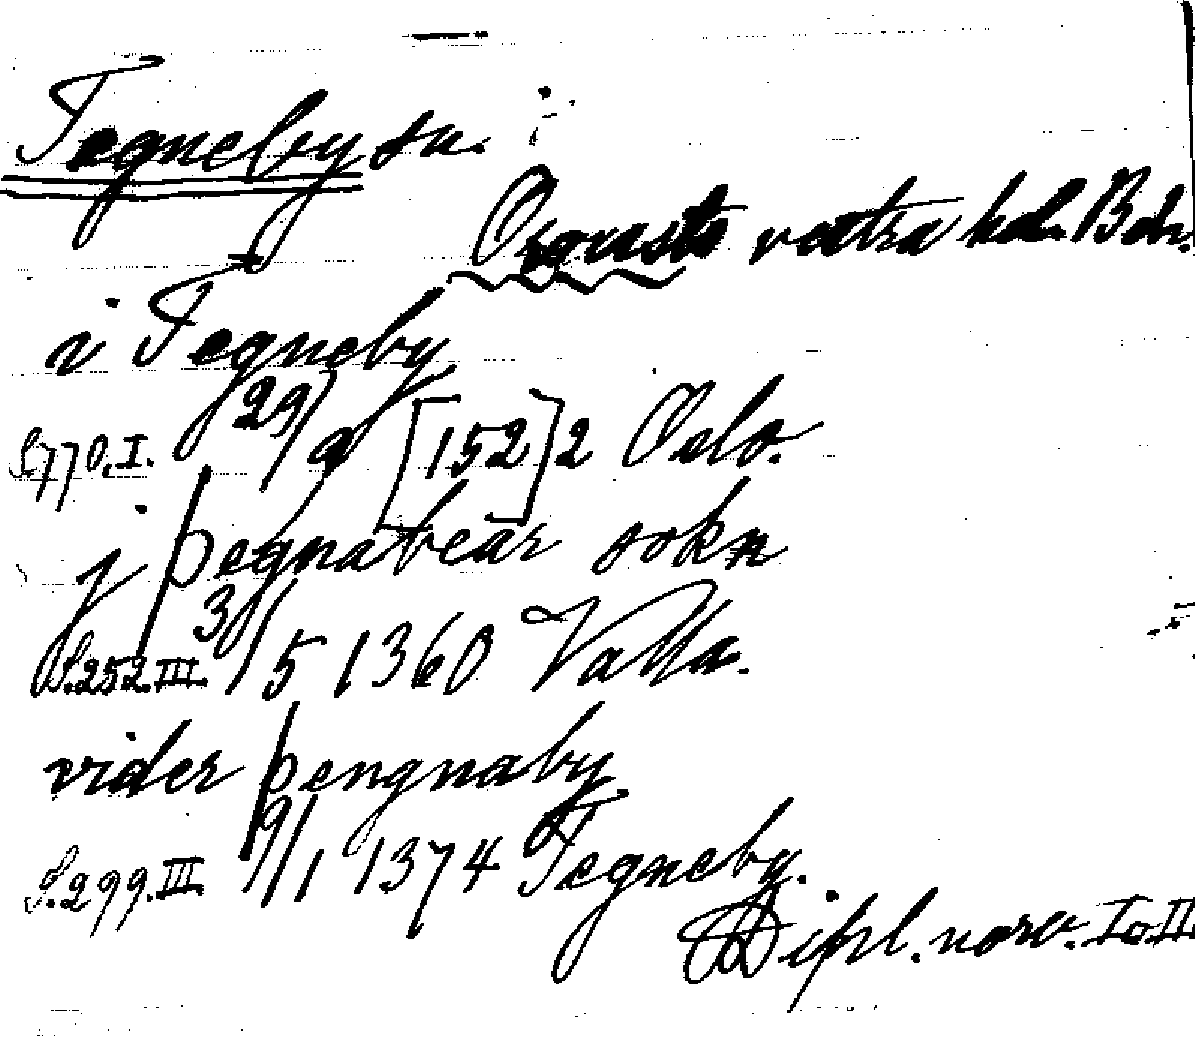 Tegneby sn.
Orousts västra hd. Boh.
i Tegneby
S. 770. I. 29/9 [152]2 Oslo.
j þegnabear sokn
S. 252. III. 31/5 1360 Valla.
vider þengnaby
S. 299. III. 9/1 1374 Tegneby.
Dipl. norv. I o. III